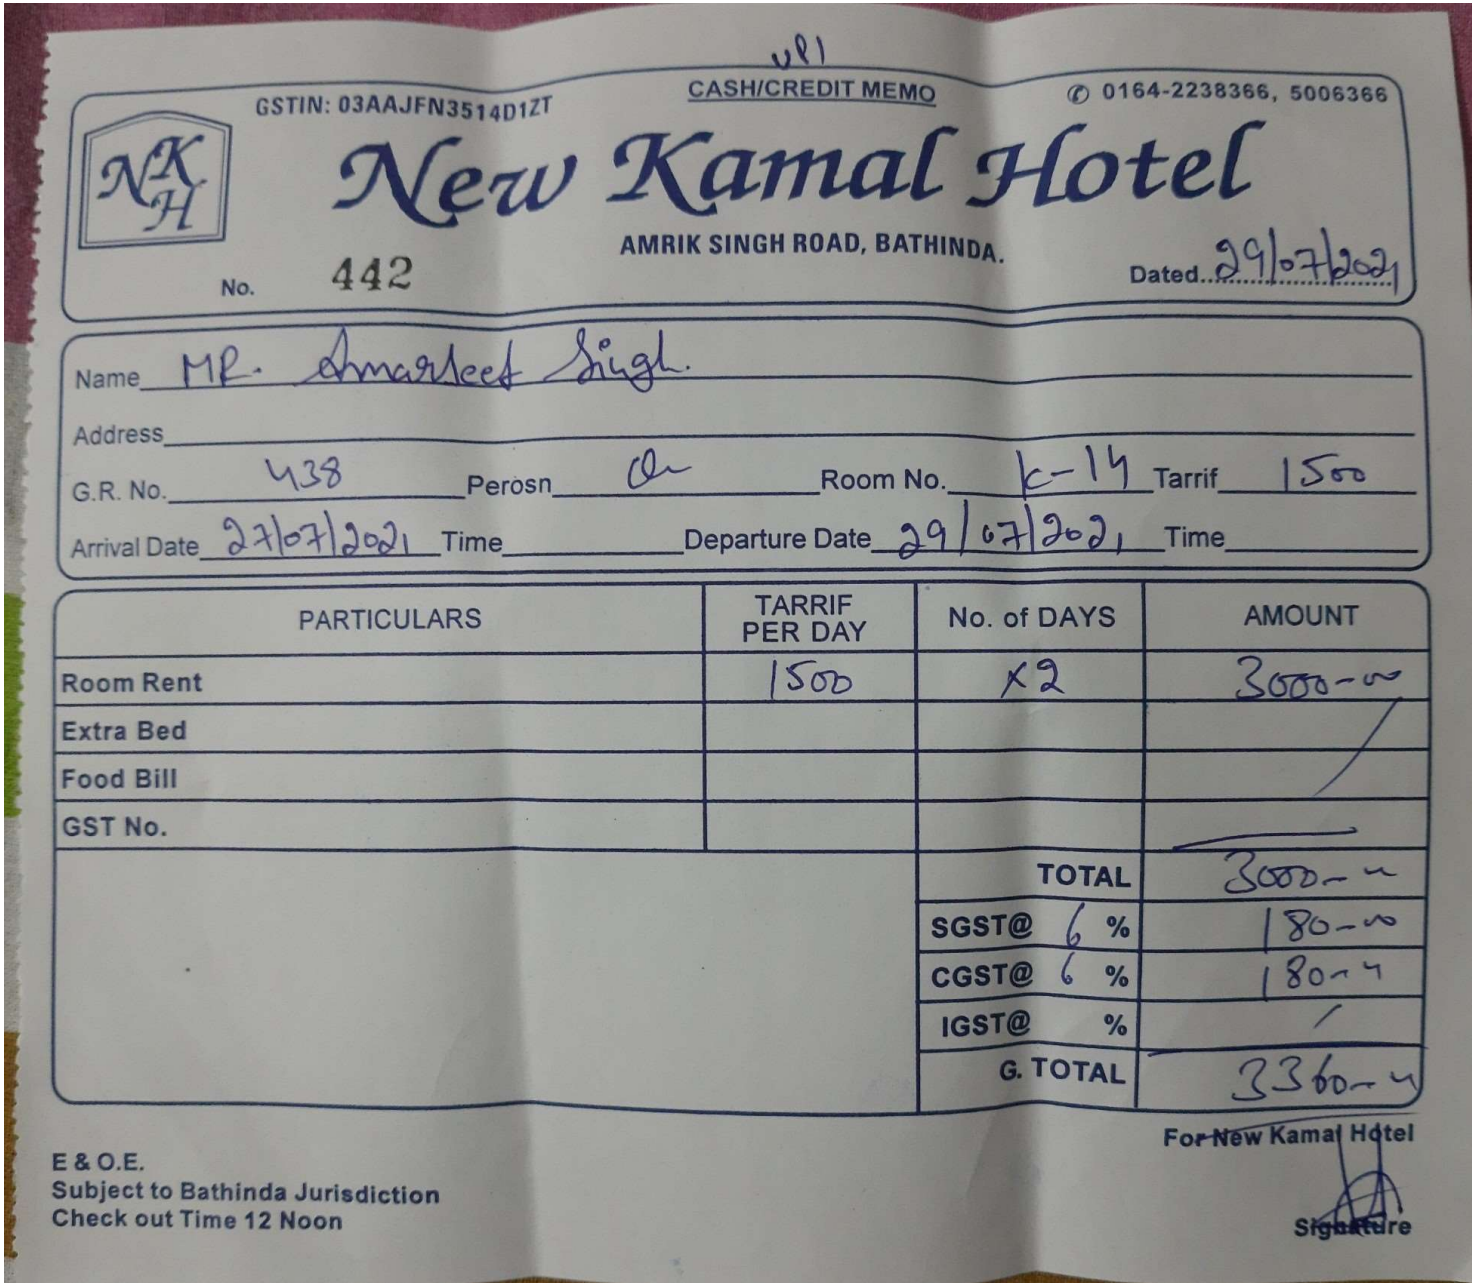 UPI
CASH/CREDIT MEMO
GSTIN: 03AAJFN3514D1ZT
✆ 0164-2238366, 5006366
NKH
New Kamal Hotel
AMRIK SINGH ROAD, BATHINDA.
No. 442
Dated 29/07/2021
Name MR. Amarjeet Singh.
Address
G.R. No. 438 Perosn Room No. K-14 Tarrif 1500
Arrival Date 27/07/2021 Time Departure Date 29/07/2021 Time
PARTICULARS TARRIF PER DAY No. of DAYS AMOUNT
Room Rent 1500 x2 3000-00
Extra Bed
Food Bill
GST No.
TOTAL 3000-00
SGST@ 6 % 180-00
CGST@ 6 % 180-00
IGST@ %
G. TOTAL 3360-00
For New Kamal Hotel
E & O.E.
Subject to Bathinda Jurisdiction
Check out Time 12 Noon
Signature